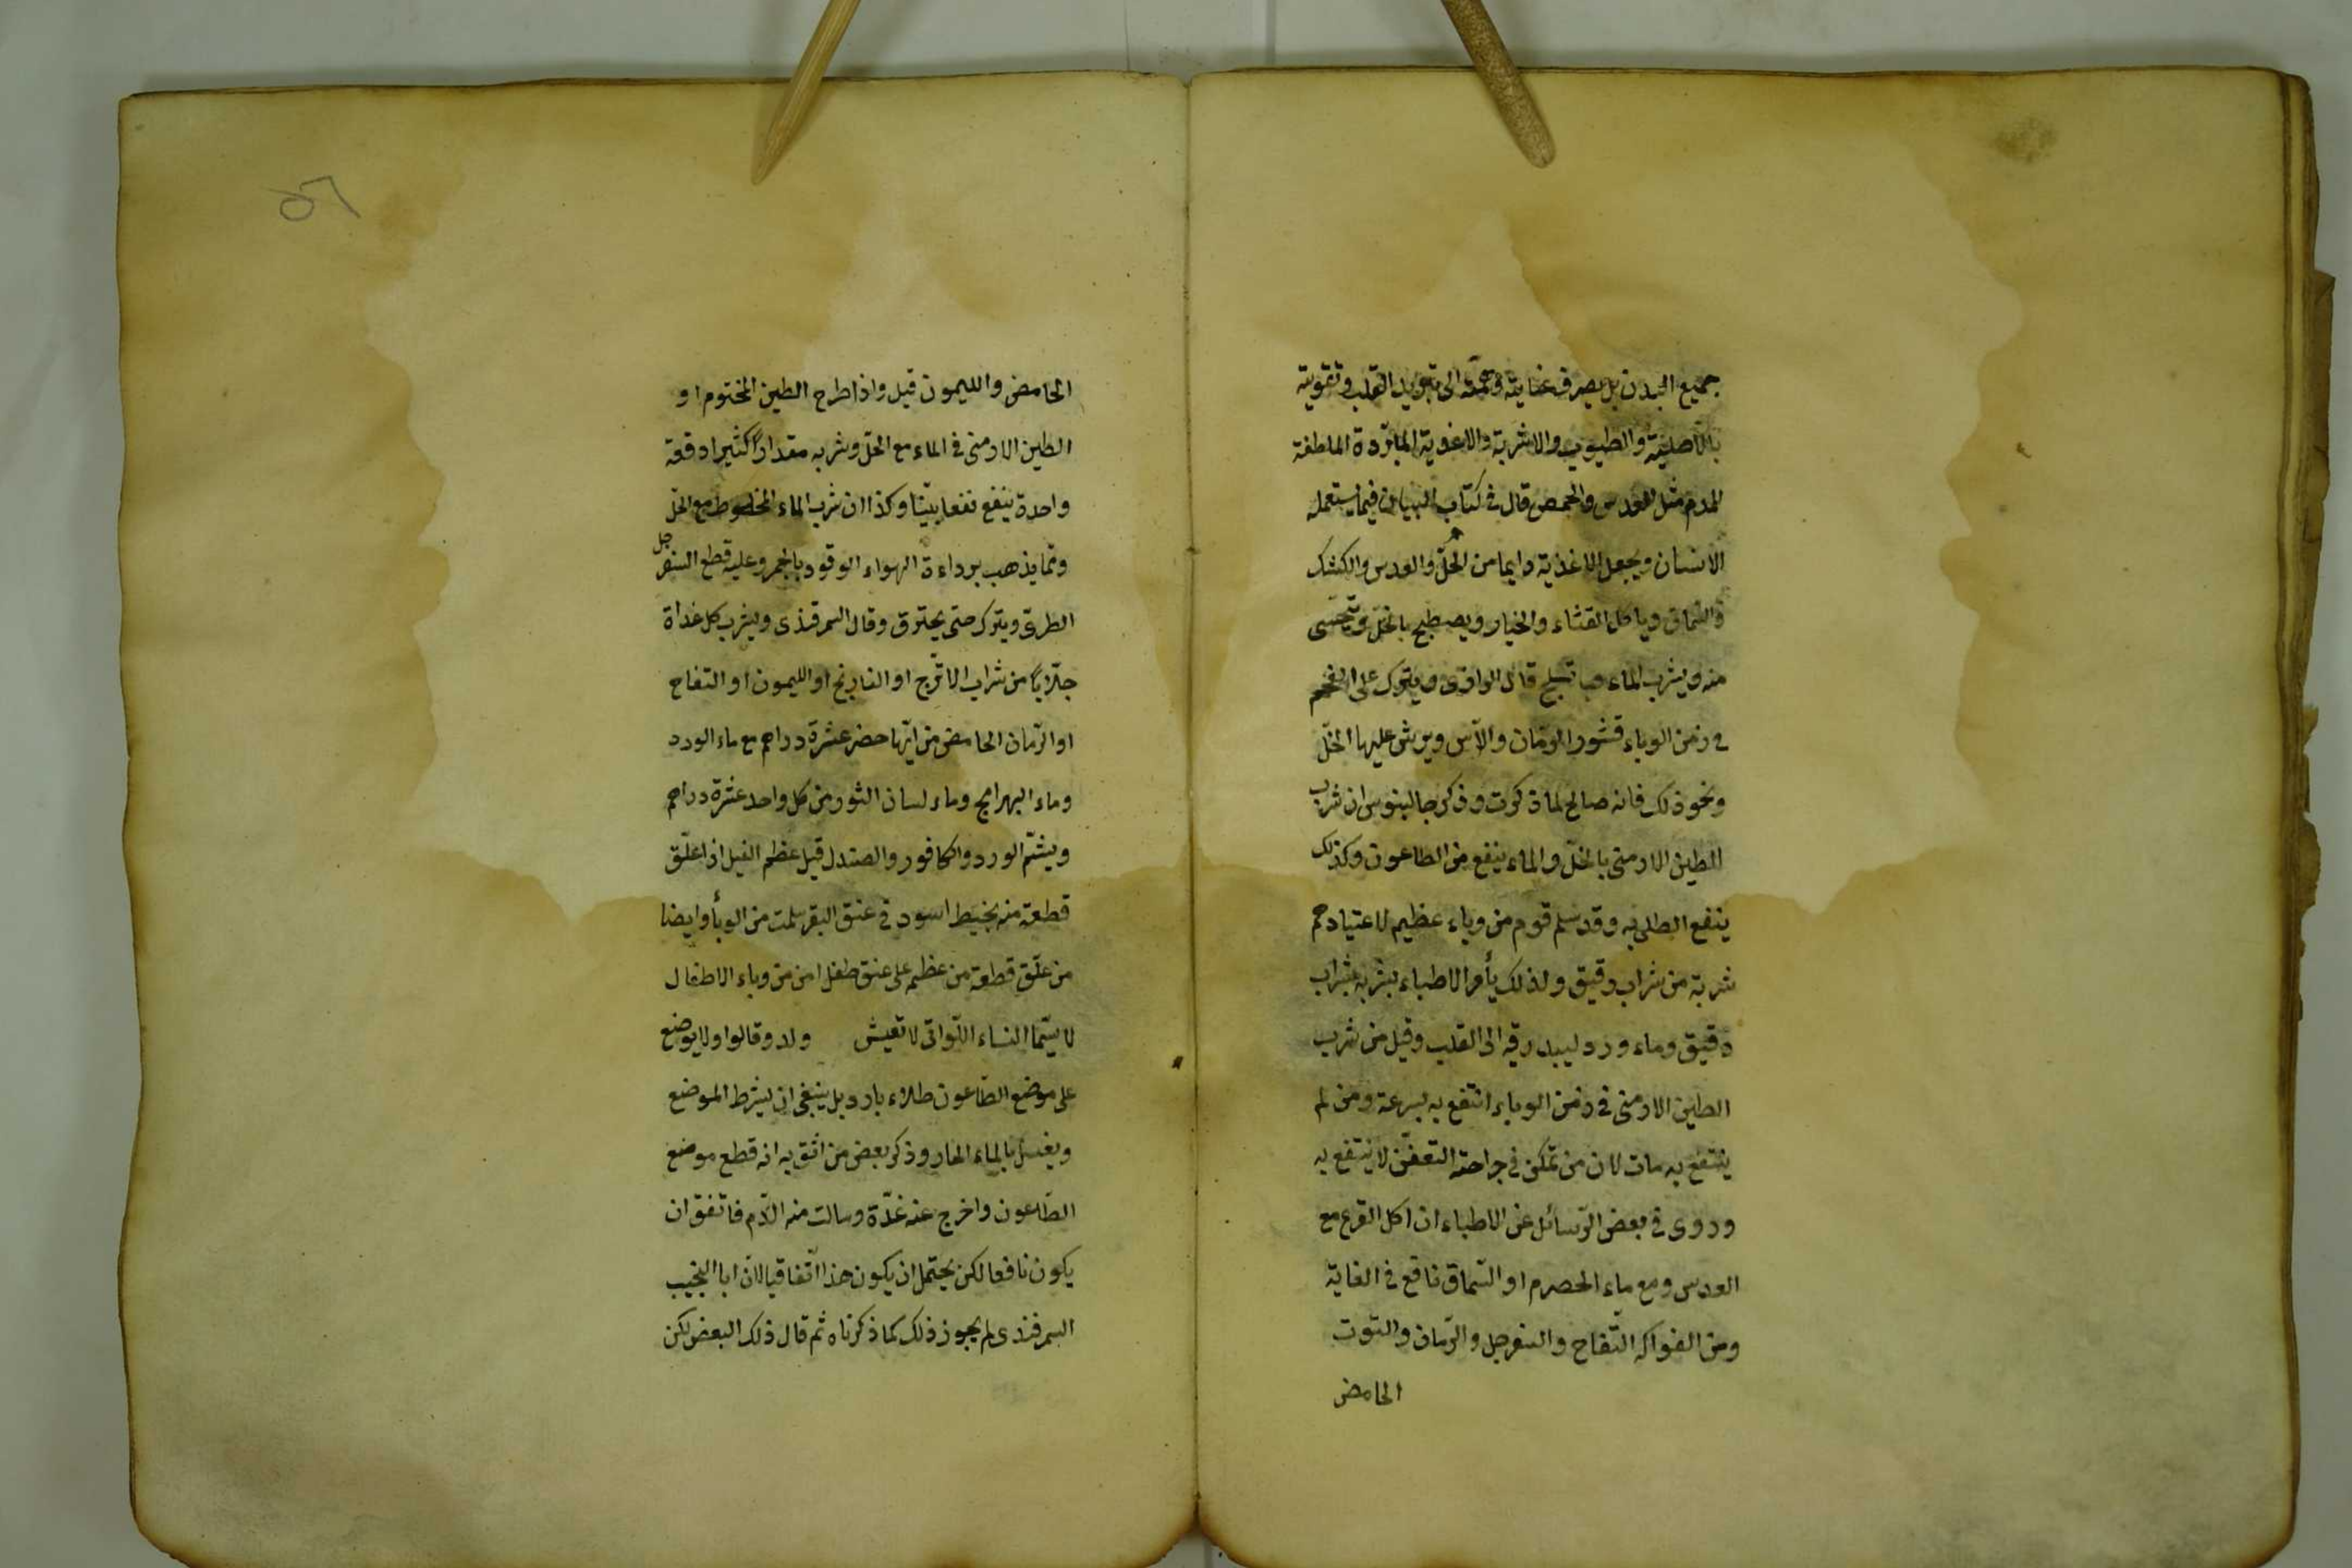 جميع البدن بل يصرف عنايته وهمته الى تبريد القلب وتقويته
بالاضلية والطيوب والاشربة والاغذية المبردة الملطفة
للدم مثل العدس والحمص قال في كتاب البيان فيما يستعمله
الانسان ويجعل الاغذية دايما من الخلّ والعدس والكشك
والسّماق وياكل القثاء والخيار ويصطبح بالخلّ ويتحسى
منه ويشرب الماء بثلج قال الوافرى ويترك على الفحم
في زمن الوباء قشور الرمّان والآس ويرش عليها الخلّ
ونحو ذلك فانه صالح لما ذكرت وذكر جالينوس ان شرب
الطين الارمنى بالخلّ والماء ينفع من الطاعون وكذلك
ينفع الطلى به وقد سلم قوم من وباء عظيم لاعتيادهم
شربة من شراب رقيق ولذلك يأمر الاطباء بشربه بشراب
رقيق وماء ورد ليبدرقه الى القلب وقيل من شرب
الطين الارمنى في زمن الوباء انتفع به بسرعة ومن لم
ينتفع به مات لان من تمكن في جراحته التعفّن لا ينتفع به
وروى في بعض الرّسائل عن الاطباء ان اكل القرع مع
العدس ومع ماء الحصرم او السّماق نافع في الغاية
ومن الفواكه التّفاح والسفرجل والرّمان والتوت
الحامض
٥٦
الحامض والليمون قيل واذا طرح الطين المختوم او
الطين الارمنى في الماء مع الخلّ وشربه مقداراً كثيرا دفعة
واحدة ينفع نفعا بيّنا وكذا ان شرب الماء المخلوط مع الخلّ
وممّا يذهب برداءة الهواء الوقود بالجمر وعليه قطع السفرجل
الطرىّ ويترك حتى يحترق وقال السمرقندى ويشرب كل غداة
جلّاباً من شراب الاترّج او النارنج او الليمون او التفاح
او الرّمان الحامض من ايّها حضر عشرة دراهم مع ماء الورد
وماء البهرامج وماء لسان الثور من كل واحد عشرة دراهم
ويشمّ الورد والكافور والصندل قيل عظم الفيل اذا علّق
قطعة منه بخيط اسود في عنق البقر سلمت من الوبأ وايضا
من علّق قطعة من عظمه على عنق طفل امن من وباء الاطفال
لا سيّما النساء اللّواتى لا تعيش ولد وقالوا ولا يوضع
على موضع الطّاعون طلاء بارد بل ينبغى ان يشرط الموضع
ويغسل بالماء الحار وذكر بعض من اثق به انه قطع موضع
الطّاعون واخرج عنه غدّة وسالت منه الدّم فاتفق ان
يكون نافعا لكن يحتمل ان يكون هذا اتّفاقيا لان ابا النجيب
السمرقندى لم يجوز ذلك كما ذكرناه ثم قال ذلك البعض لكن